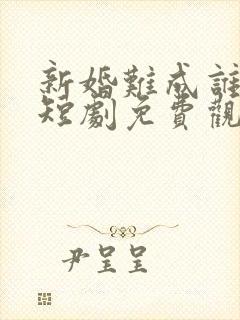 新婚難成誰
短劇免費觀
尹呈呈